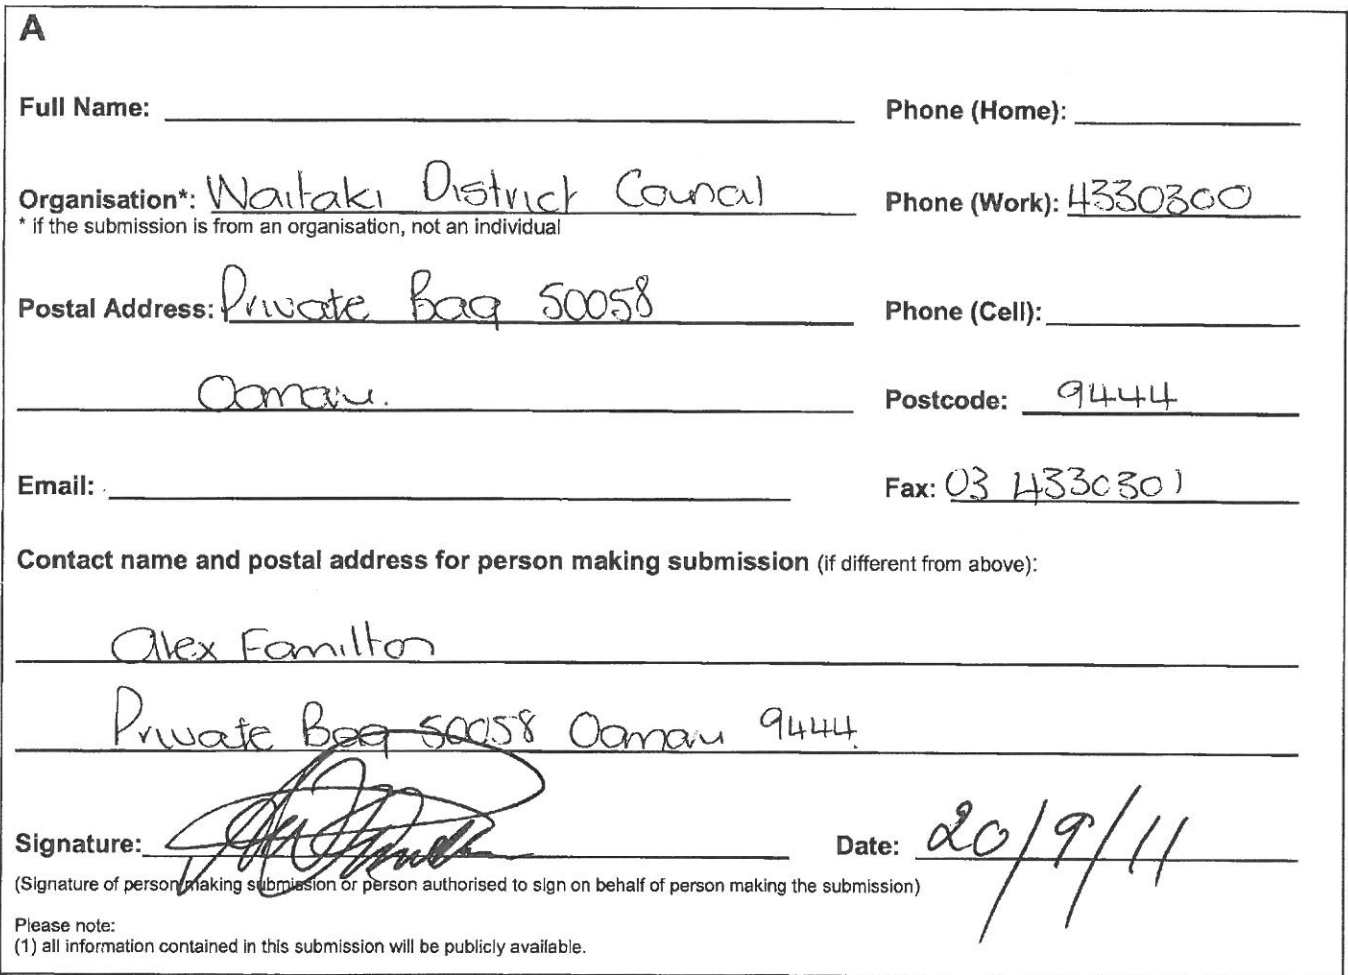 A
Full Name: Phone (Home):
Organisation*: Waitaki District Council Phone (Work): 4330300
* if the submission is from an organisation, not an individual
Postal Address: Private Bag 50058 Phone (Cell):
Oamaru. Postcode: 9444
Email: Fax: 03 4330301
Contact name and postal address for person making submission (if different from above):
Alex Familton
Private Bag 50058 Oamaru 9444
Signature: Date: 20/9/11
(Signature of person making submission or person authorised to sign on behalf of person making the submission)
Please note:
(1) all information contained in this submission will be publicly available.